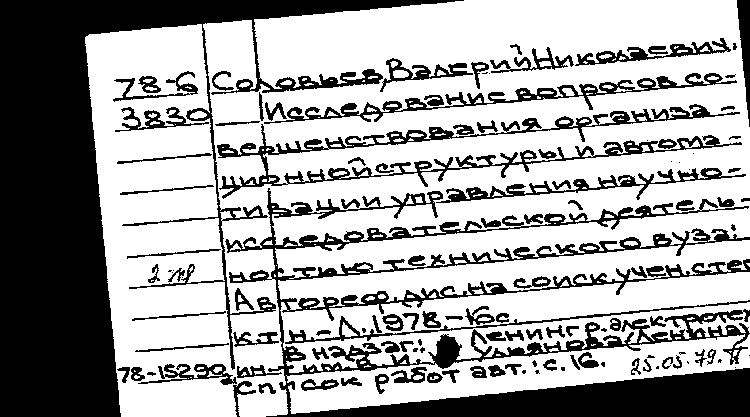 78-6 Соловьев, Валерий Николаевич.
3830 Исследование вопросов со-
вершенствования организа-
ционной структуры и автома-
тизации управления научно-
исследовательской деятель-
ностью технического вуза:
2 пр
Автореф. дис. на соиск. учен. степ
к.т.н. - Л., 1978. - 16 с.
В надзаг.: Ленингр. электротех
78-15290 ин-т им. В. И. Ульянова (Ленина)
Список работ авт.: с. 16.
25.05.79.